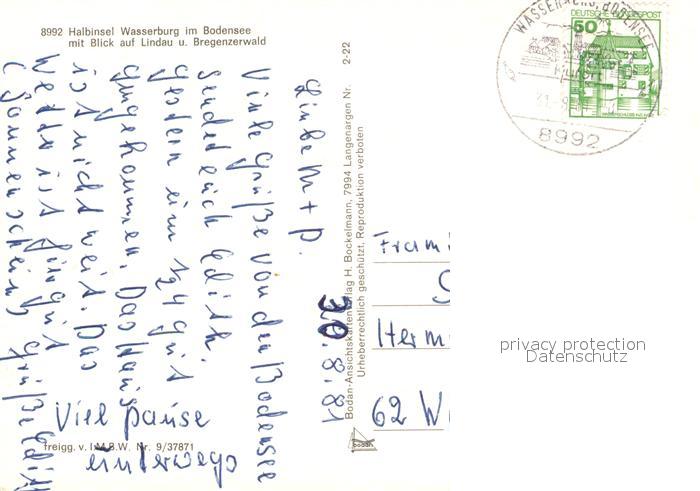 8992 Halbinsel Wasserburg im Bodensee
mit Blick auf Lindau u. Bregenzerwald
WASSERBURG, BODENSEE
8992
DEUTSCHE BUNDESPOST
50
30.8.81
Liebe M + P.
Viele Grüße von den Bodensee
sendet euch Edith.
Gestern um 1/4 gut
angekommen. Das Haus
ist nicht weit. Das
Wetter ist gut
(Sonnenschein) Grüße Edith
Viel pause
unterwegs
freigg. v. I.M.B.W. Nr. 9/37871
2-22
Bodan-Ansichtskartenverlag H. Bockelmann, 7994 Langenargen Nr.
Urheberrechtlich geschützt, Reproduktion verboten
bodan
Herm
62 W
privacy protection
Datenschutz